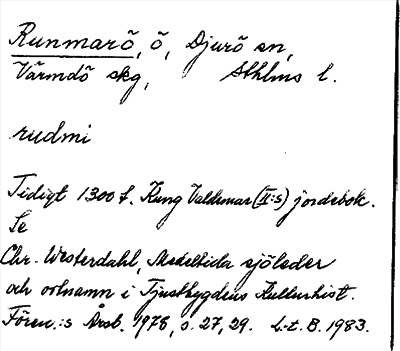 Runmarö, ö, Djurö sn,
Värmdö skg, Sthlms l.
rudmi
Tidigt 1300 t. Kung Valdemar (II:s) jordebok.
Se
Chr. Westerdahl, Medeltida sjöleder
och ortnamn i Tjustbygdens Kulturhist.
Fören.:s Årsb. 1978, s. 27, 29. L-t. B. 1983.